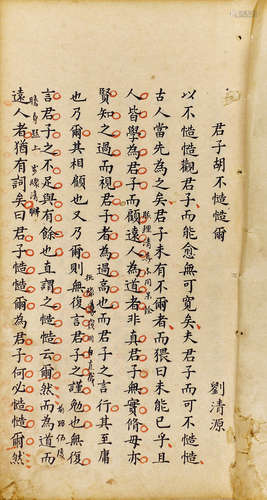 君子胡不慥慥爾
劉清源
以不慥慥觀君子而能愈無可寬矣夫君子而可不慥慥
古人當先為之矣君子未有不爾者而猥曰未能已乎且
人皆學為君子而顧遠人為道者非真君子無實脩毋亦
賢知之過而視君子者為過高也而君子之言行其至庸
也乃爾其相顧也又乃爾則無復言君子之謹勉也無復
言君子之不足與有餘也直謂之慥慥云爾然而為道而
遠人者猶有詞矣曰君子慥慥爾為君子何必慥慥爾然